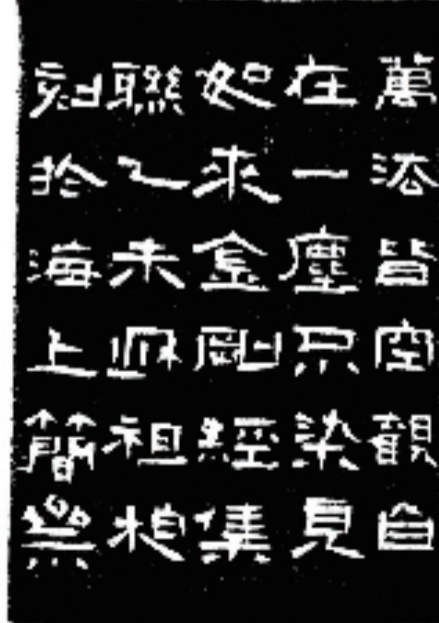 萬法皆空觀自
在一塵不染見
如來金剛經集
聯乙未祖
刻於海上簡